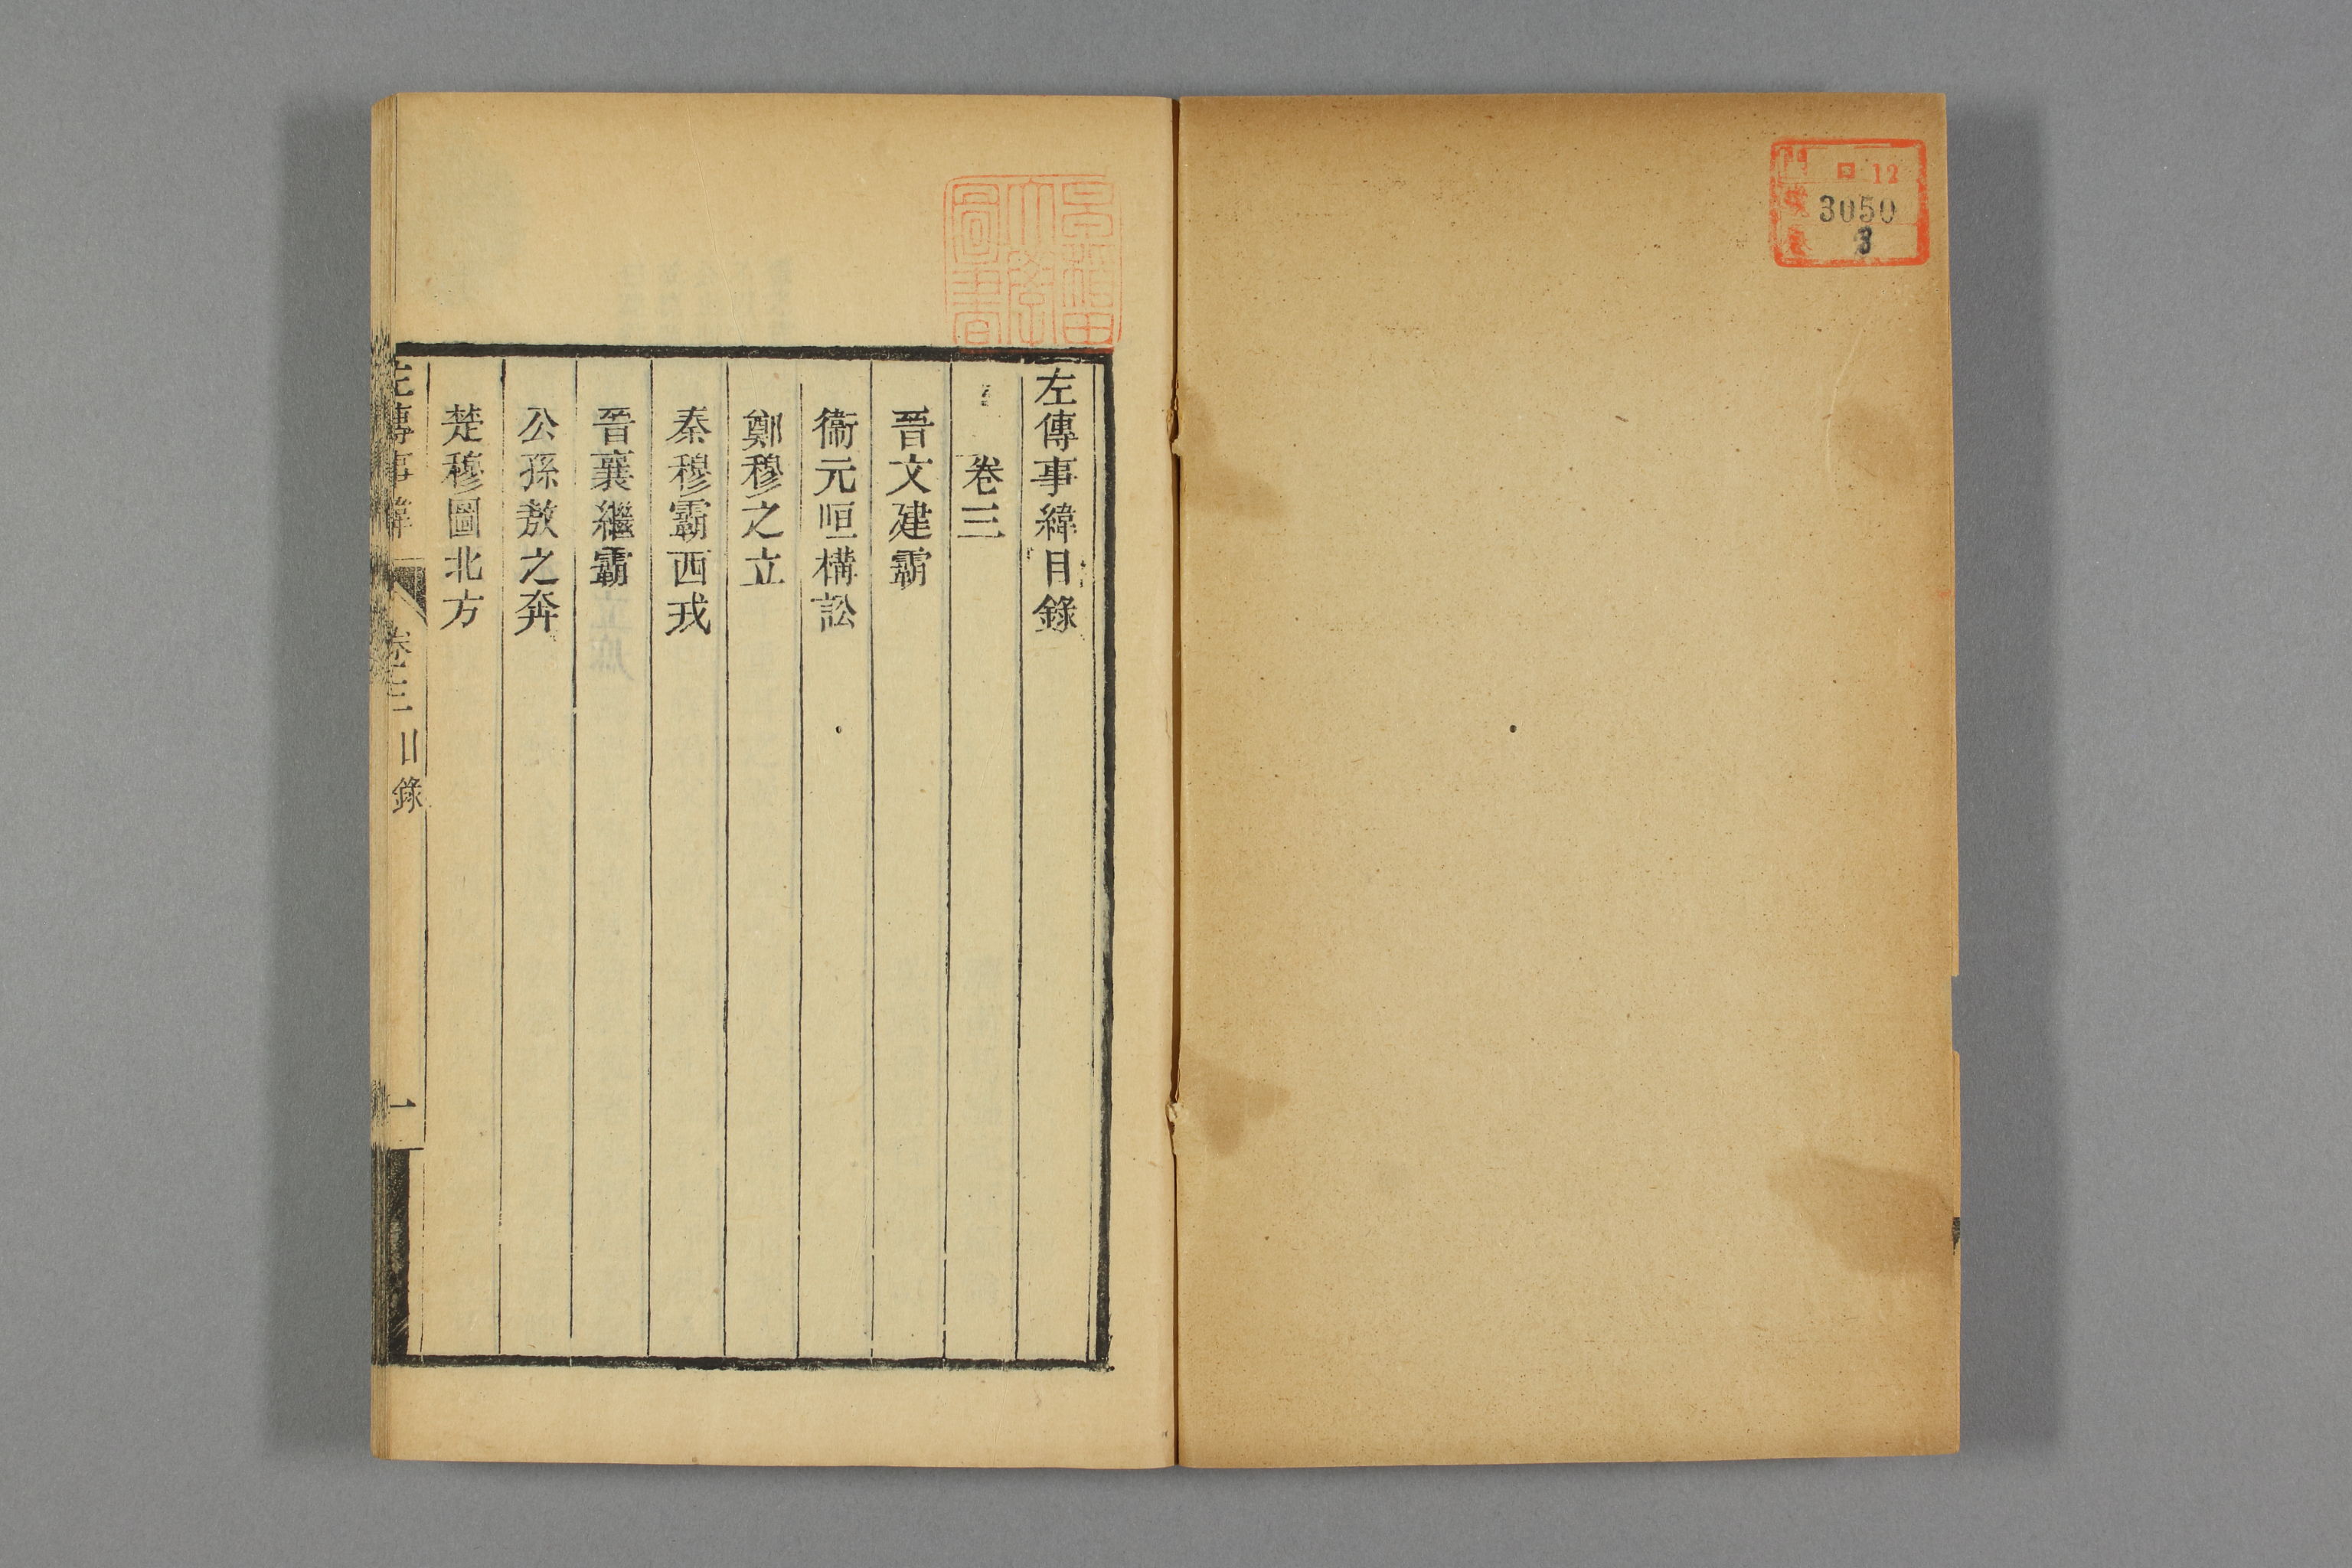 門 ロ 12
號 3050
卷 3
早稲田
大學
圖書
左傳事緯目錄
卷三
晉文建霸
衞元咺構訟
鄭穆之立
秦穆霸西戎
晉襄繼霸
公孫敖之奔
楚穆圖北方
左傳事緯 卷三目錄 一